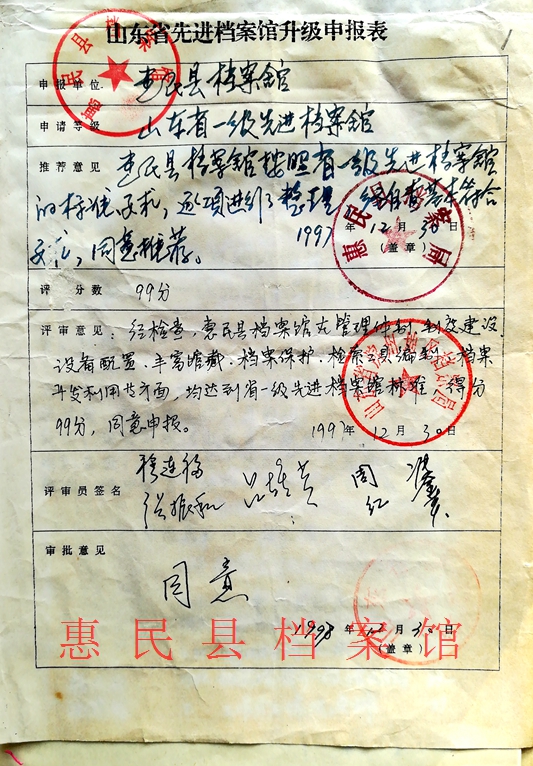 山东省先进档案馆升级申报表
1
申报单位 惠民县档案馆
申请等级 山东省一级先进档案馆
推荐意见 惠民县档案馆按照省一级先进档案馆
的标准要求，逐项进行了整理，经自查基本符合
要求，同意推荐。
1997年12月30日
（盖章）
惠民县档案局
评分数 99分
评审意见： 经检查，惠民县档案馆在管理体制、制度建设、
设备配置、丰富馆藏、档案保护、检索工具编制、档案
开发利用等方面，均达到省一级先进档案馆标准，得分
99分，同意申报。
1997年12月30日
评审员签名
张振和
周红
审批意见
同意
1998年12月30日
（盖章）
惠民县档案馆